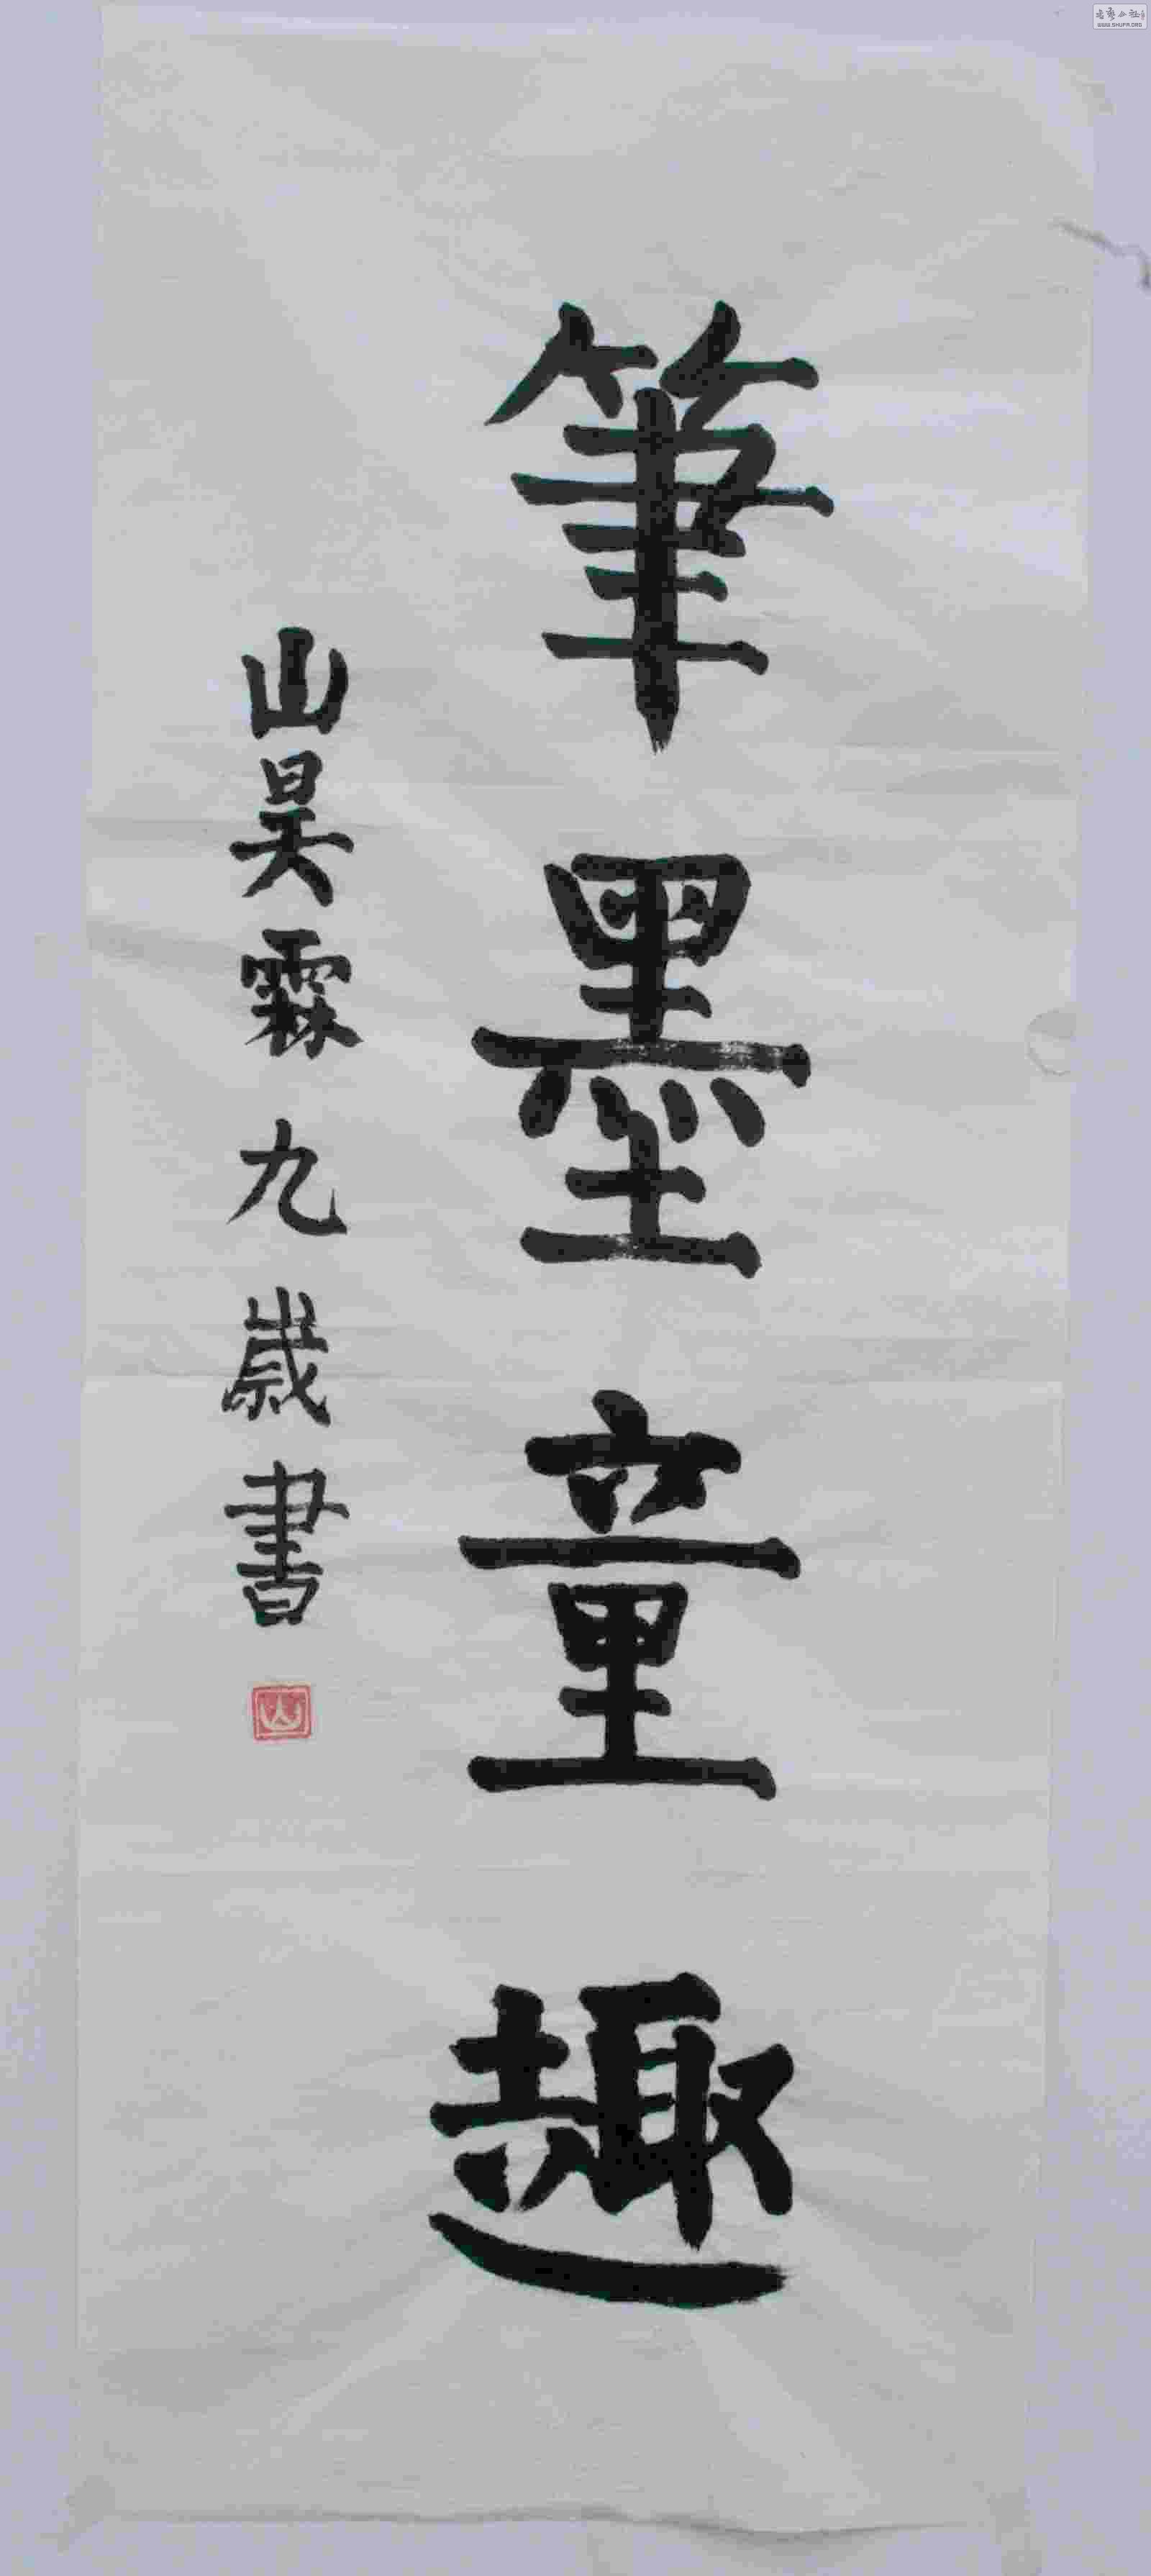 筆墨童趣
山昊霖九歲書
山
WWW.SHUFA.ORG